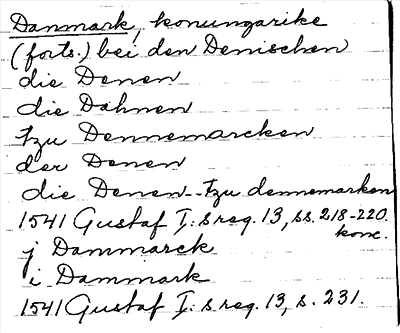 Danmark, konungarike
(forts.) bei den Denischen
die Denen
die Dahnen
tzu Dennemarcken
der Denen
die Denen - tzu dennemarken
1541 Gustaf I:s reg. 13, ss. 218-220.
konc.
j Dammarck
i Dammark
1541 Gustaf I:s reg. 13, s. 231.